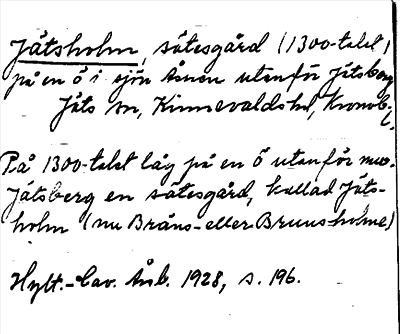 Jätsholm, sätesgård (1300-talet)
på en ö i sjön Åsnen utanför Jätsberg
Jäts sn, Kinnevalds hd, Kronob. l.
På 1300-talet låg på en ö utanför nuv.
Jätsberg en sätesgård, kallad Jäts-
holm (nu Bräns- eller Bruns-holme)
Hylt.-Cav. Årsb. 1928, s. 196.